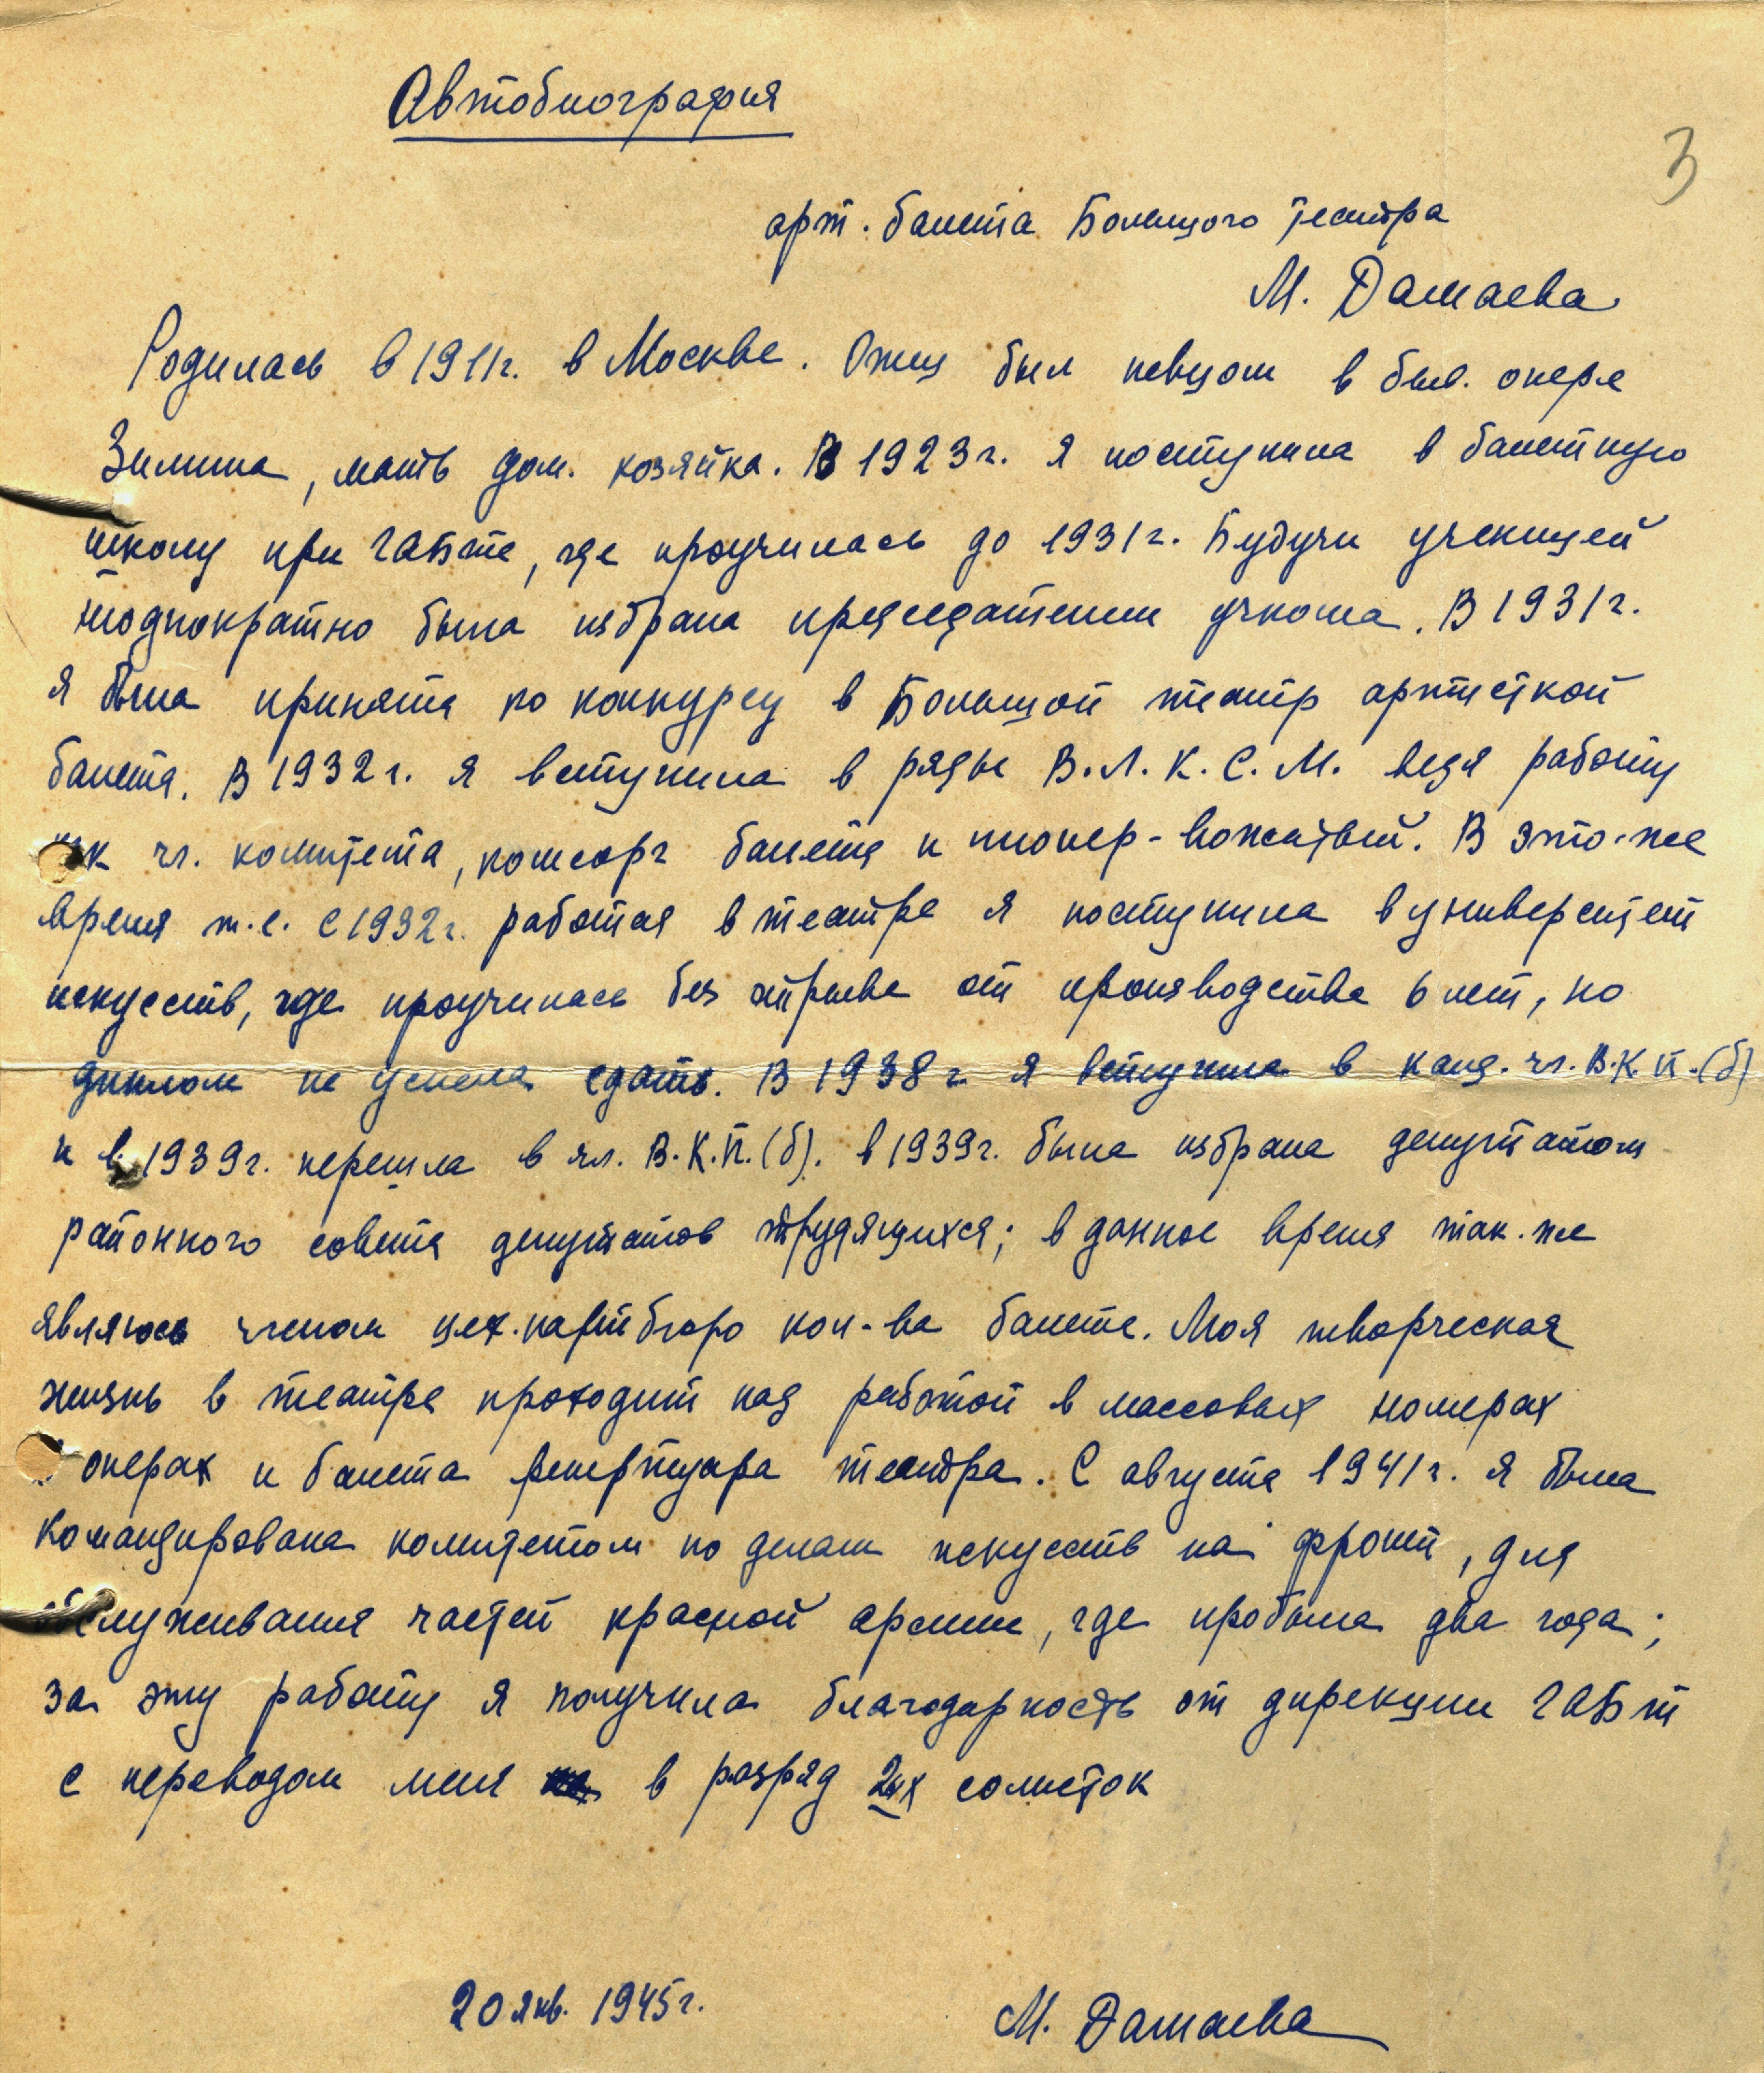 Автобиография
3
арт. балета Большого театра
М. Дамаева
Родилась в 1911г. в Москве. Отец был певцом в быв. опере
Зимина, мать дом. хозяйка. В 1923г. я поступила в балетную
школу при ГАБте, где проучилась до 1931г. Будучи ученицей
неоднократно была избрана председателем учкома. В 1931г.
я была принята по конкурсу в Большой театр артисткой
балета. В 1932г. я вступила в ряды В.Л.К.С.М. ведя работу
как чл. комитета, комсорг балета и пионер-вожатый. В это-же
время т.е. с 1932г. работая в театре я поступила в университет
искусств, где проучилась без отрыва от производства 6 лет, но
диплом не успела сдать. В 1938г. я вступила в канд. чл. В.К.П.(б)
и в 1939г. перешла в чл. В.К.П.(б). в 1939г. была избрана депутатом
районного совета депутатов трудящихся; в данное время так-же
являюсь членом цех.партбюро кол-ва балета. Моя творческая
жизнь в театре проходит над работой в массовых номерах
в операх и балета репертуара театра. С августа 1941г. я была
командирована комитетом по делам искусств на фронт, для
обслуживания частей красной армии, где пробыла два года;
за эту работу я получила благодарность от дирекции ГАБт
с переводом меня в разряд 2ых солисток
20 янв. 1945г.
М. Дамаева